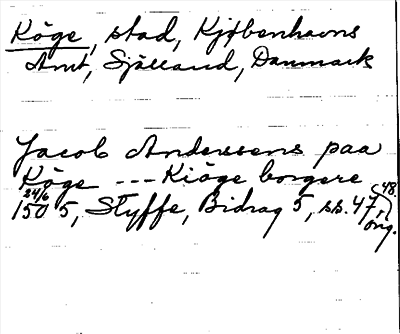 Köge, stad, Kjøbenhavns
Amt, Själland, Danmark
Jacob Anderssens paa
Köge --- Kiöge borgere
24/6 1505, Styffe, Bidrag 5, ss. 47, 48.
orig.